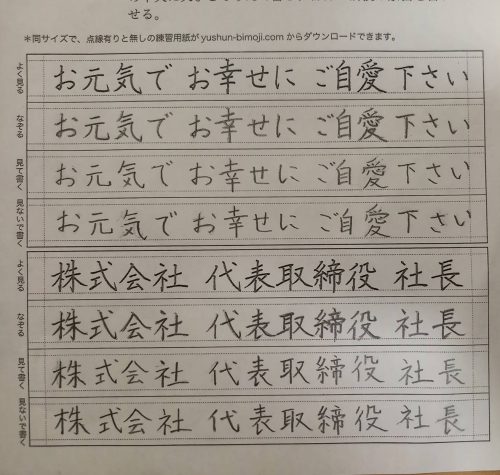 せる。
＊同サイズで、点線有りと無しの練習用紙が yushun-bimoji.com からダウンロードできます。
よく見る お元気で お幸せに ご自愛下さい
なぞる お元気で お幸せに ご自愛下さい
見て書く お元気で お幸せに ご自愛下さい
見ないで書く お元気で お幸せに ご自愛下さい
よく見る 株式会社 代表取締役 社長
なぞる 株式会社 代表取締役 社長
見て書く 株式会社 代表取締役 社長
見ないで書く 株式会社 代表取締役 社長